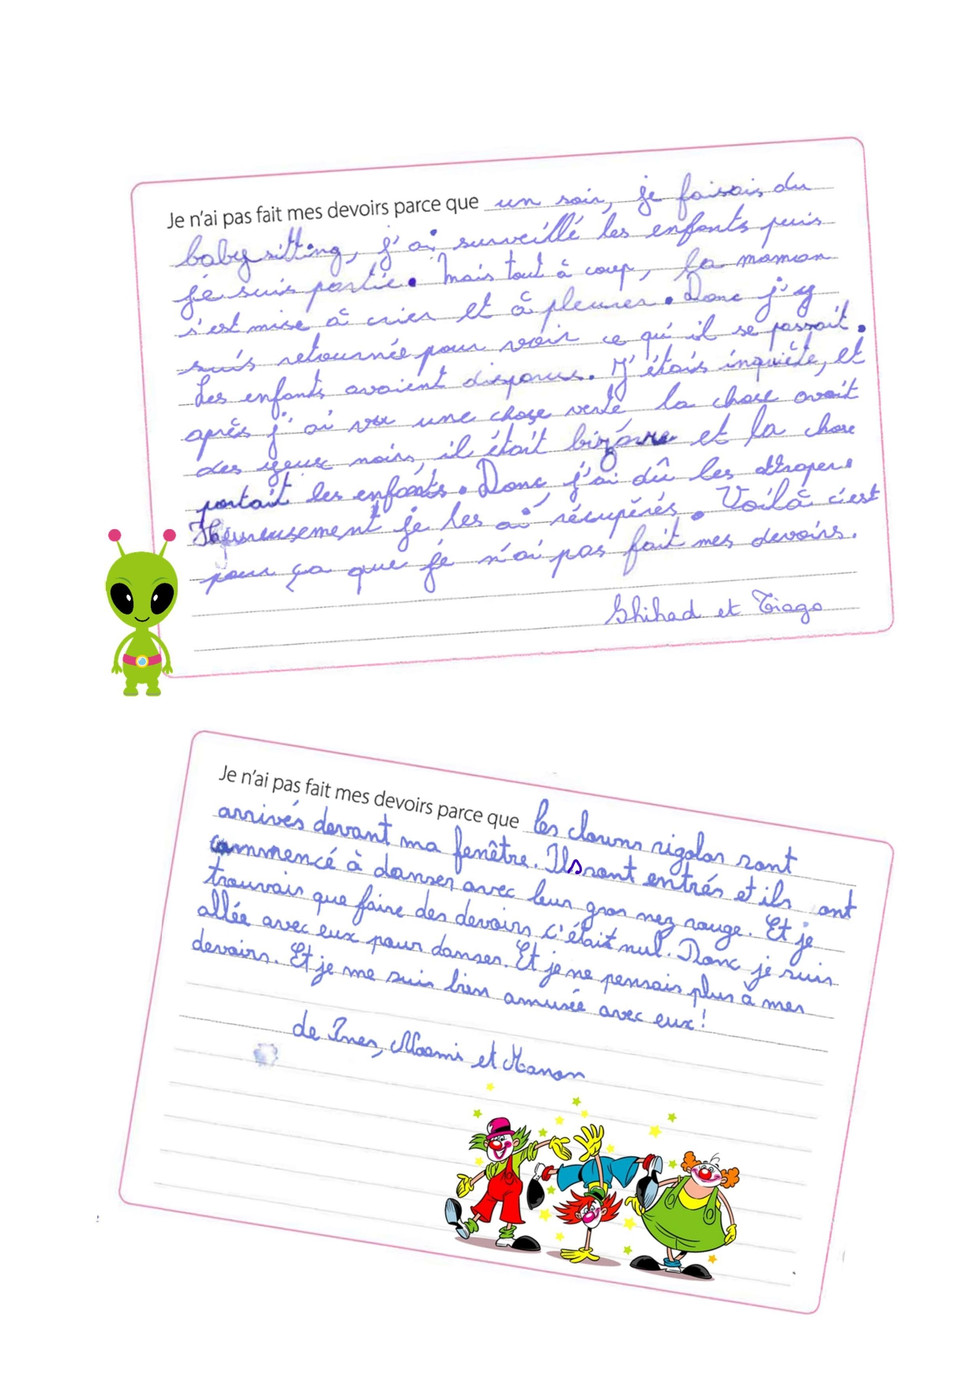 Je n'ai pas fait mes devoirs parce que un soir, je faisais du
baby sitting, j'ai surveillé les enfants puis
je suis partie. Mais tout à coup, la maman
s'est mise à crier et à pleurer. Donc j'y
suis retournée pour voir ce qu'il se passait.
Les enfants avaient disparus. J'étais inquiète, et
après j'ai vu une chose verte la chose avait
des yeux noirs, il était bizarre et la chose
portait les enfants. Donc, j'ai dû les attraper.
Heureusement je les ai récupérés. Voilà c'est
pour ça que je n'ai pas fait mes devoirs.
Shihad et Tiago
Je n'ai pas fait mes devoirs parce que les clowns rigolos sont
arrivés devant ma fenêtre. Ils sont entrés et ils ont
commencé à danser avec leur gros nez rouge. Et je
trouvais que faire des devoirs c'était nul. Donc je suis
allée avec eux pour danser. Et je ne pensais plus à mes
devoirs. Et je me suis bien amusée avec eux!
de Ines, Naomi et Manon